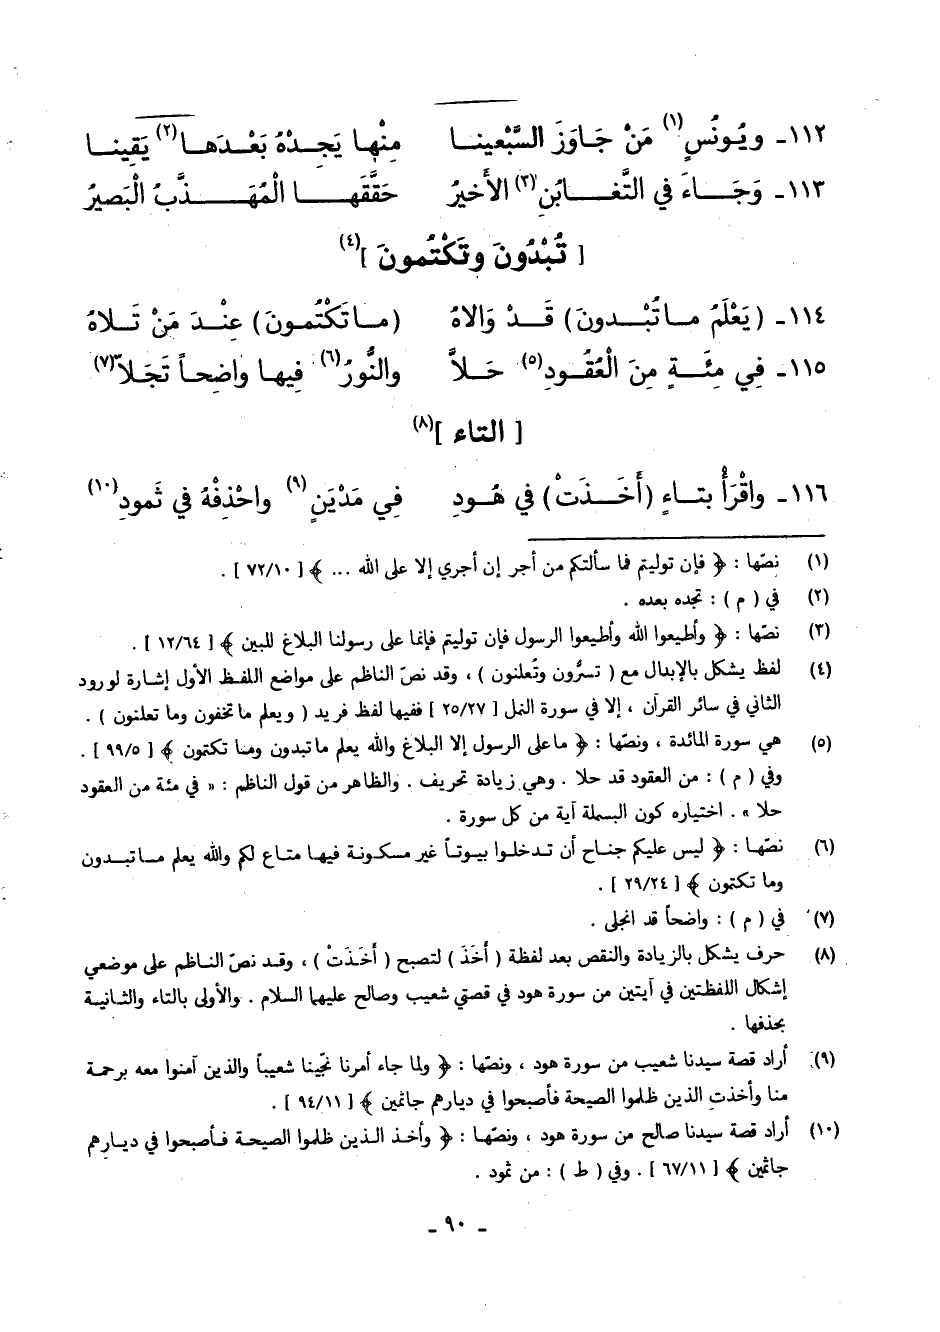 ١١٢ـ ويُونُسٍ(١) مَنْ جَاوَزَ السَّبْعينا مِنْها يَجِدْهُ بَعْدَها(٢) يَقِينا
١١٣ـ وَجَاءَ في التَّغابُنِ(٣) الأَخيرُ حَقَّقَها الْمُهَذَّبُ الْبَصيرُ
[ تُبْدُونَ وتَكْتُمونَ ](٤)
١١٤ـ (يَعْلَمُ ماتُبْدونَ) قَدْ وَالاهُ (ماتَكْتُمونَ) عِنْدَ مَنْ تَلاهُ
١١٥ـ فِي مِئَةٍ مِنَ الْعُقُودِ(٥) حَلاَّ والنُّورُ(٦) فِيها واضِحاً تَجَلاّ(٧)
[ التاء ](٨)
١١٦ـ واقْرَأْ بتاءٍ (أَخَذَتْ) في هُودِ فِي مَدْيَنٍ(٩) واحْذِفْهُ في ثَمودِ(١٠)
(١) نصّها : ﴿ فإن توليتم فما سألتكم من أجر إن أجري إلا على الله ... ﴾ [ ٧٢/١٠ ] .
(٢) في ( م ) : تجده بعده .
(٣) نصّها : ﴿ وأطيعوا الله وأطيعوا الرسول فإن توليتم فإنما على رسولنا البلاغ المبين ﴾ [ ١٢/٦٤ ] .
(٤) لفظ يشكل بالإبدال مع ( تسرُّون وتُعلنون ) ، وقد نصّ الناظم على مواضع اللفظ الأول إشارة لورود
الثاني في سائر القرآن ، إلا في سورة النمل [ ٢٥/٢٧ ] ففيها لفظ فريد ( ويعلم ماتخفون وما تعلنون ) .
(٥) هي سورة المائدة ، ونصّها : ﴿ ماعلى الرسول إلا البلاغ والله يعلم ماتبدون وما تكتمون ﴾ [ ٩٩/٥ ] .
وفي ( م ) : من العقود قد حلا . وهي زيادة تحريف . والظاهر من قول الناظم : « في مئة من العقود
حلا » . اختياره كون البسملة آية من كل سورة .
(٦) نصّها : ﴿ ليس عليكم جناح أن تدخلوا بيوتاً غير مسكونة فيها متاع لكم والله يعلم ماتبدون
وما تكتمون ﴾ [ ٢٩/٢٤ ] .
(٧) في ( م ) : واضحاً قد انجلى .
(٨) حرف يشكل بالزيادة والنقص بعد لفظة ( أَخَذَ ) لتصبح ( أَخَذَتْ ) ، وقد نصّ الناظم على موضعي
إشكال اللفظتين في آيتين من سورة هود في قصتي شعيب وصالح عليها السلام . والأولى بالتاء والثانية
بحذفها .
(٩) أراد قصة سيدنا شعيب من سورة هود ، ونصّها : ﴿ ولما جاء أمرنا نجّينا شعيباً والذين آمنوا معه برحمة
منا وأخذتِ الذين ظلموا الصيحة فأصبحوا في ديارهم جاثمين ﴾ [ ٩٤/١١ ] .
(١٠) أراد قصة سيدنا صالح من سورة هود ، ونصّها : ﴿ وأخذ الذين ظلموا الصيحة فأصبحوا في ديارهم
جاثمين ﴾ [ ٦٧/١١ ] . وفي ( ط ) : من ثمود .
ـ ٩٠ ـ